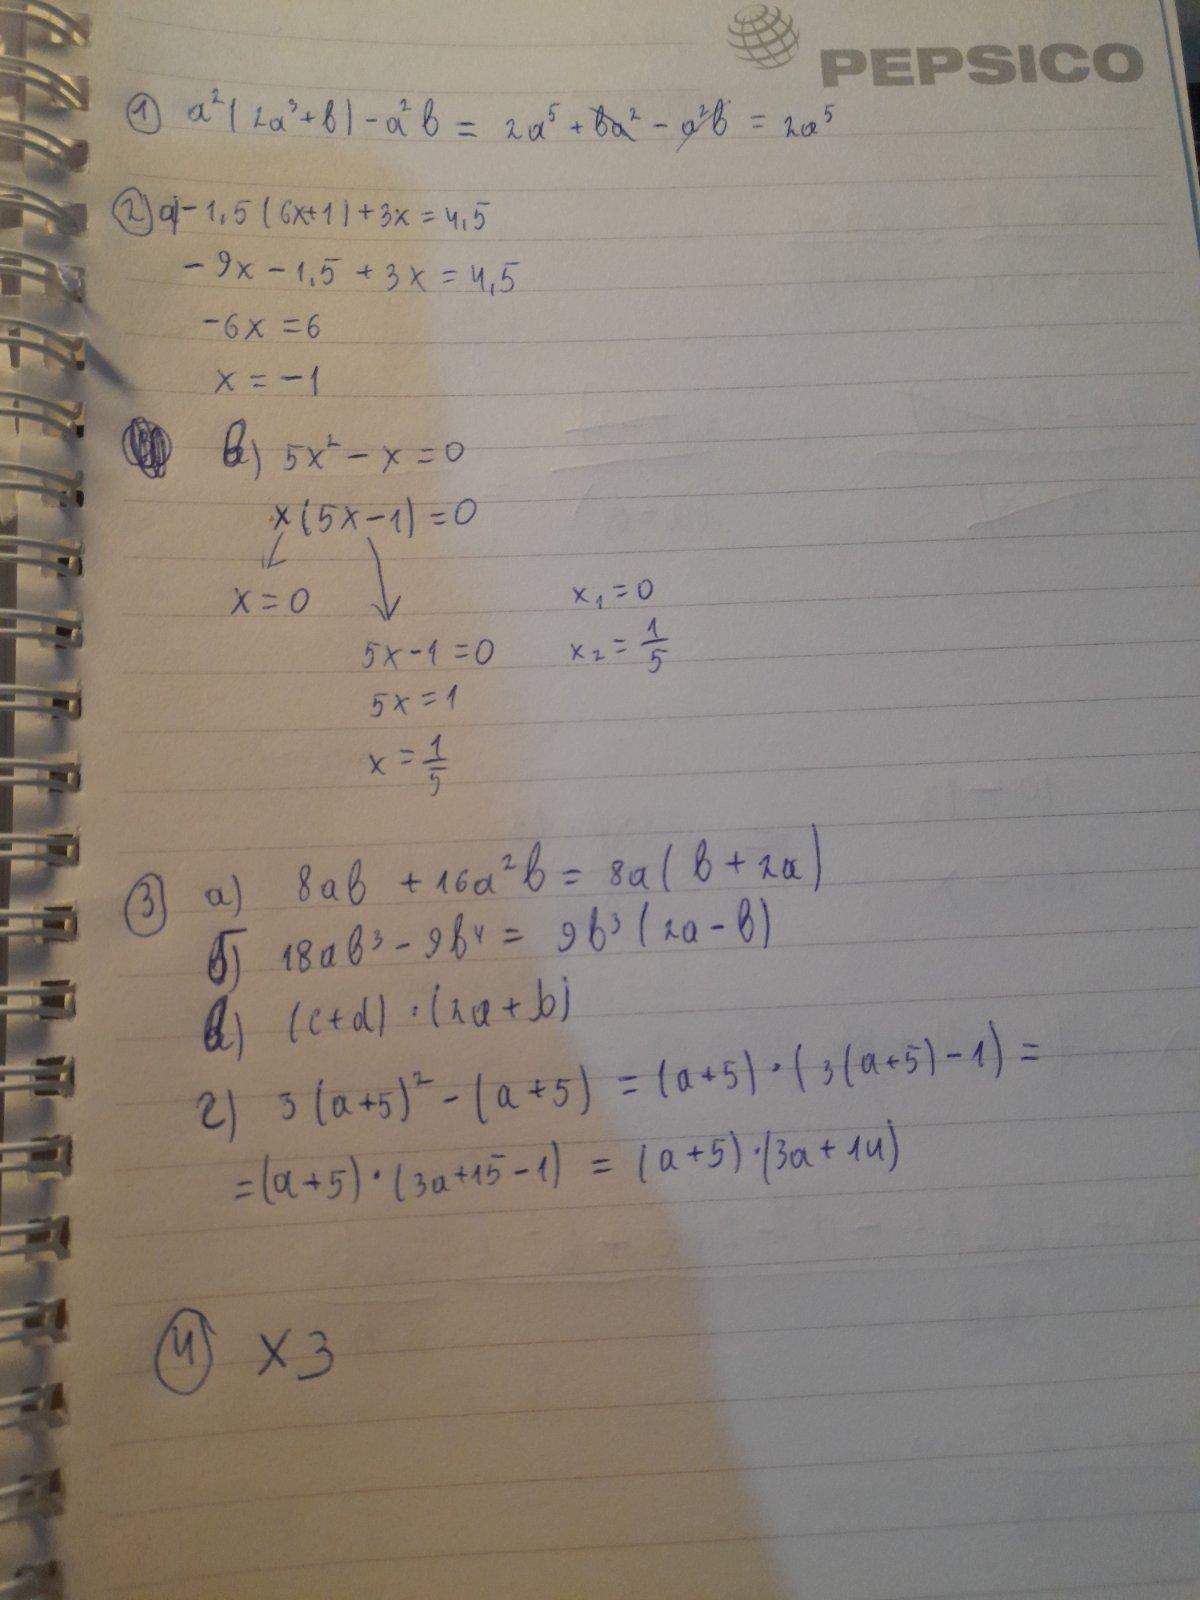 PEPSICO
① a²(2a³+b)-a²b = 2a⁵+ba²-a²b = 2a⁵
② а) -1,5(6x+1)+3x=4,5
-9x-1,5+3x=4,5
-6x=6
x=-1
в) 5x²-x=0
x(5x-1)=0
x=0
x₁=0
5x-1=0
x₂=1/5
5x=1
x=1/5
③ а) 8ab +16a²b = 8a(b+2a)
б) 18ab³-9b⁴ = 9b³(2a-b)
в) (c+d)·(2a+b)
г) 3(a+5)²-(a+5) = (a+5)·(3(a+5)-1) =
=(a+5)·(3a+15-1) = (a+5)·(3a+14)
④ х3